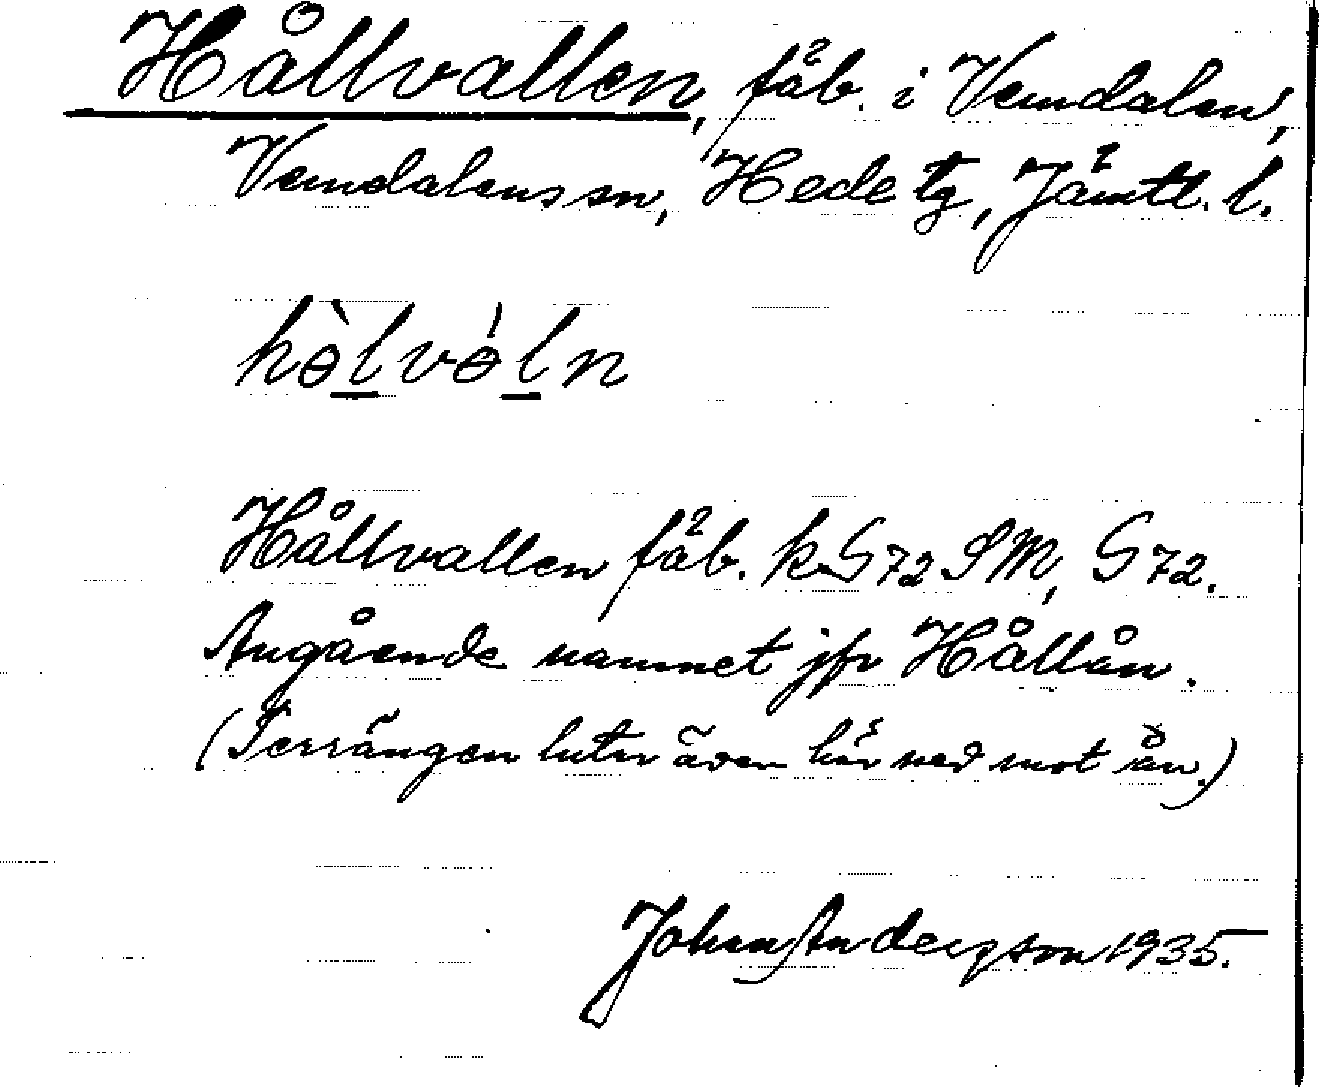 Hållvallen, fäb. i Vemdalen,
Vemdalens sn, Hede tg, Jämtl. l.
hɵ̀l̠vɵ́l̠n
Hållvallen fäb. k G72 SM, G 72.
Angående namnet jfr Hållån.
(Terrängen lutar även här ned mot ån.)
Johan Anderson 1935.